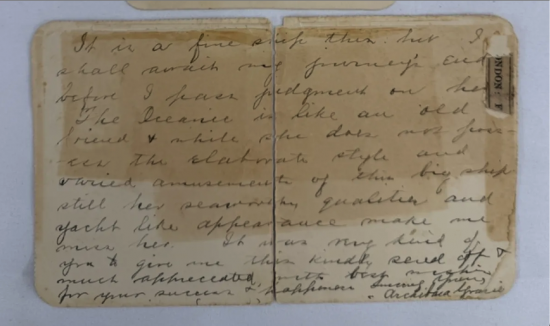 It is a fine ship this but I
shall await my journey's end
before I pass judgment on her.
The Oceanic is like an old
friend & while she does not pos-
sess the elaborate style and
varied amusements of this big ship
still her seaworthy qualities and
yacht like appearance make me
miss her. It was very kind of
you to give me this kindly send off &
much appreciated with best wishes
for your success & happiness
Archibald Gracie
ONDON: